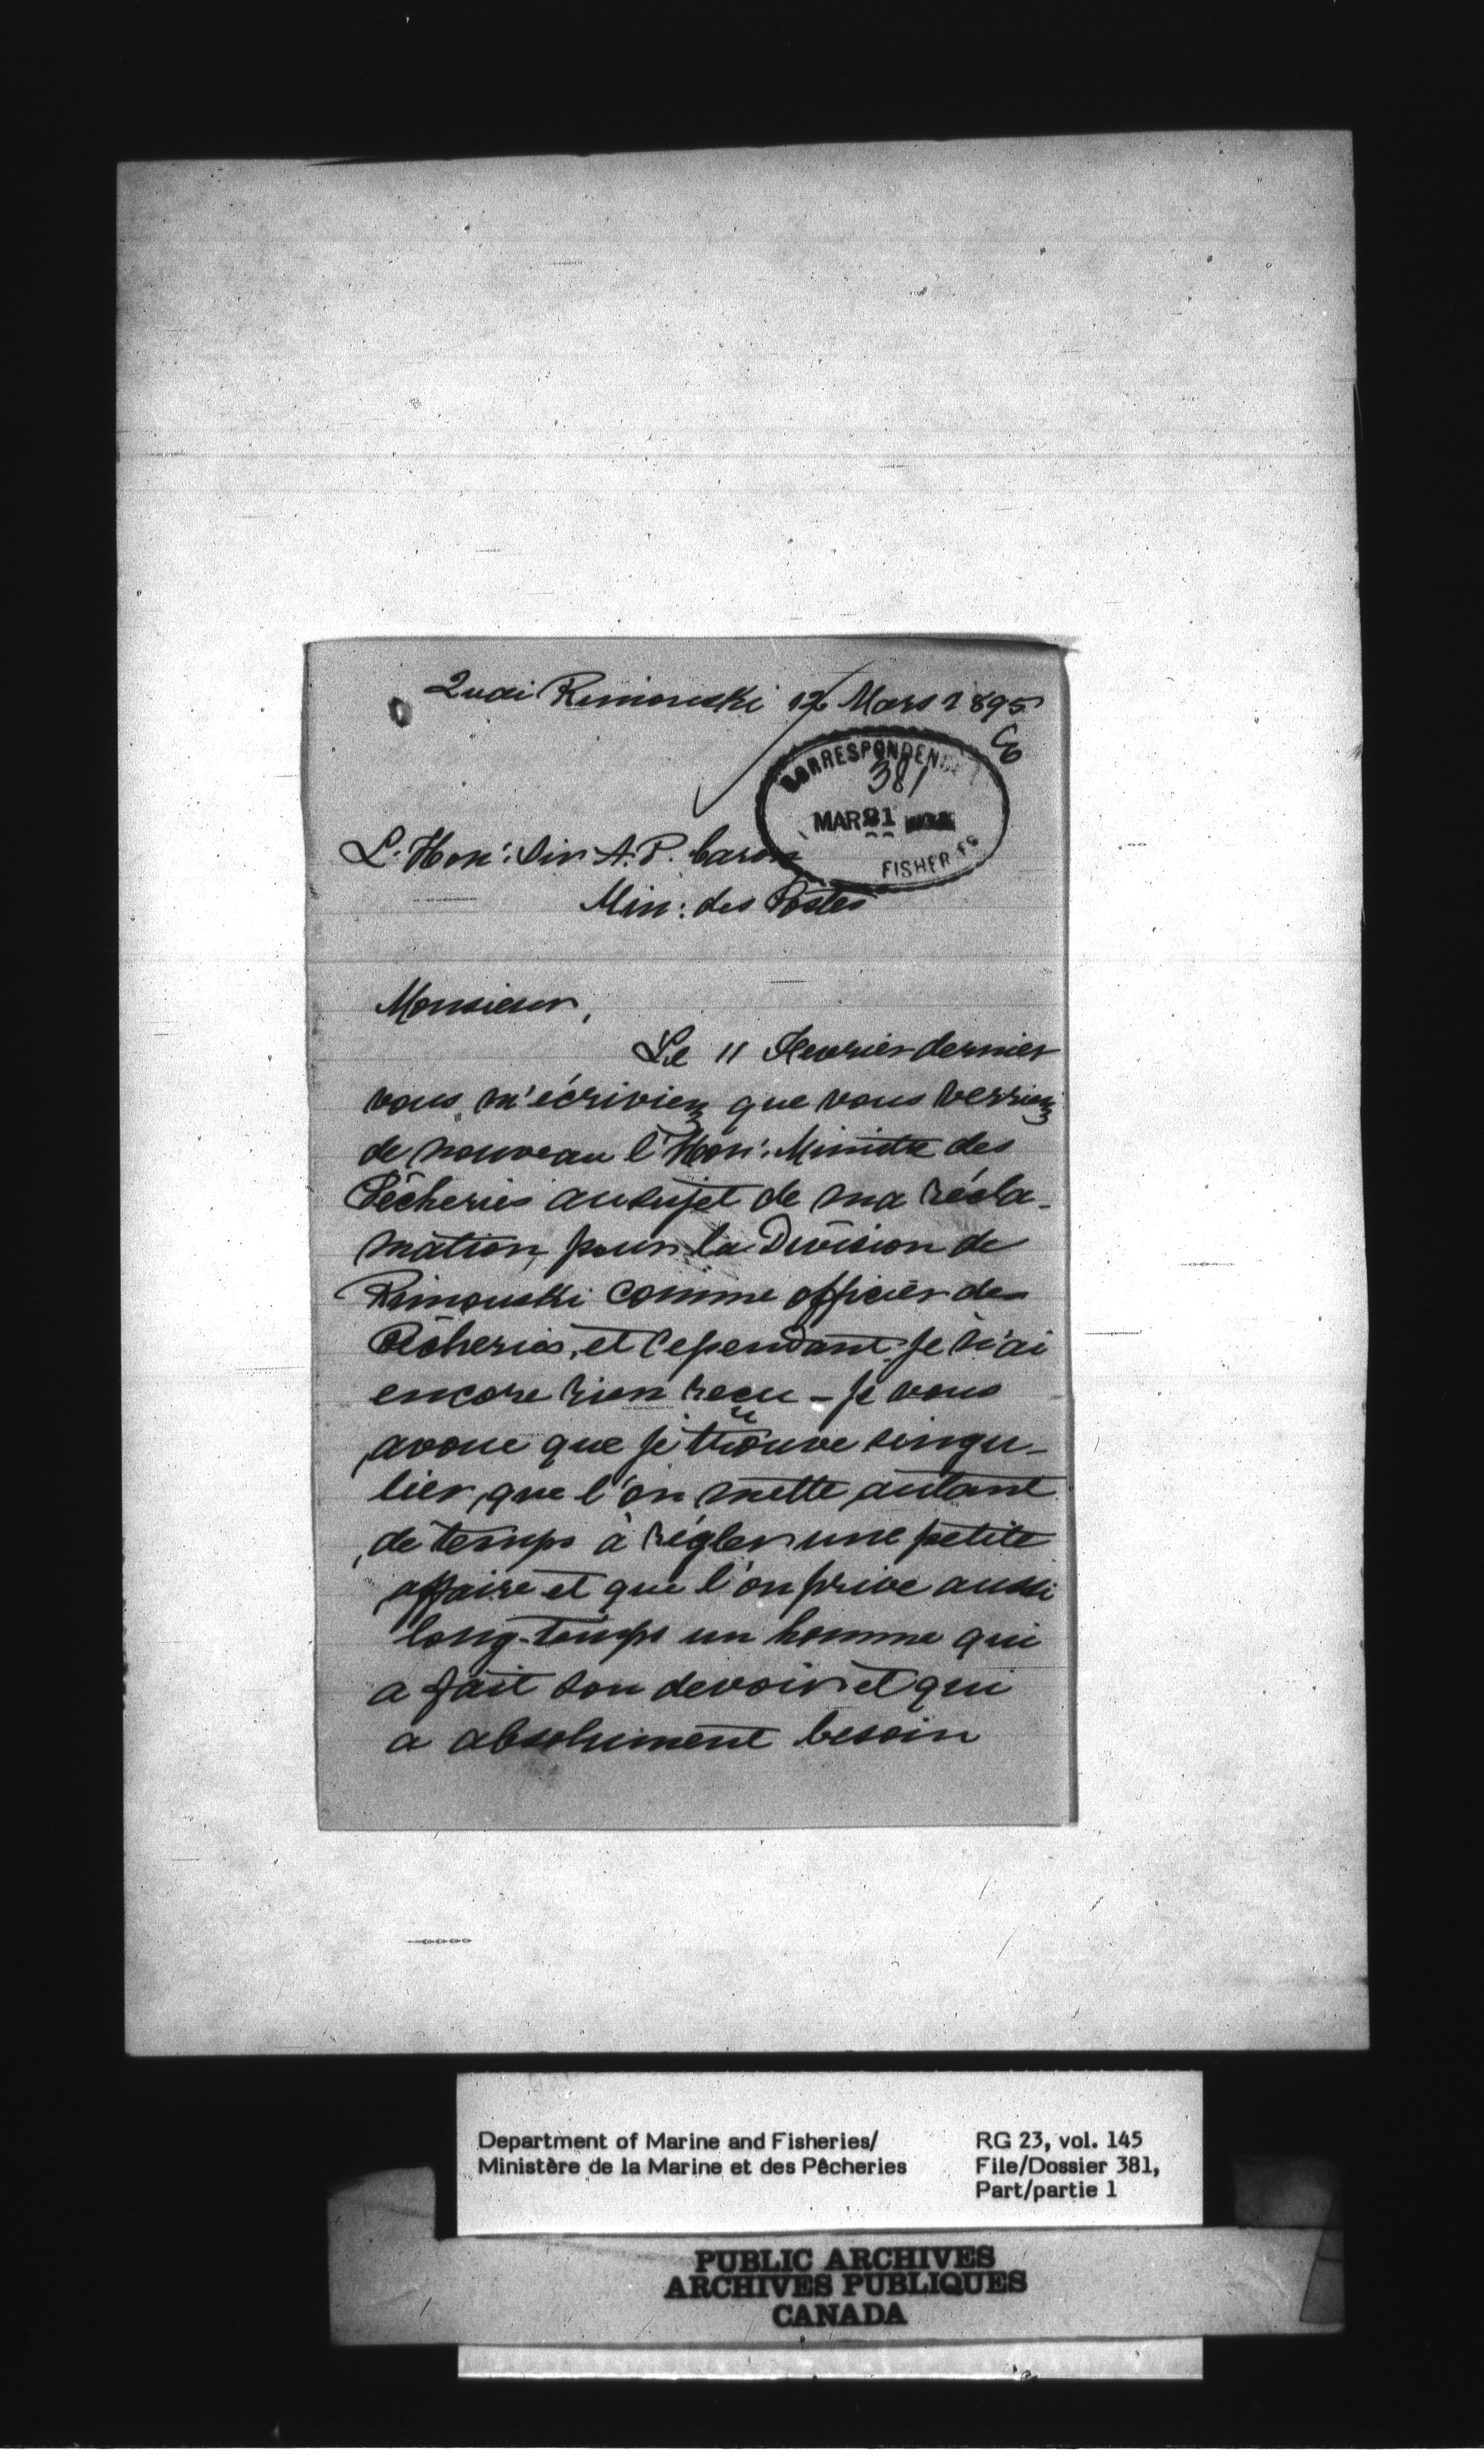 Quai Rimouski 12 Mars 1895
CORRESPONDENCE
381
MAR 21
FISHERIES
L. Hon: Sir A. P. Caron
Min: des Postes
Monsieur,
Le 11 Fevrier dernier
vous m'écriviez que vous verriez
de nouveau l'Hon: Ministre des
Pêcheries au sujet de ma récla-
mation, pour la Division de
Rimouski comme officier des
Pêcheries, et cependant je n'ai
encore rien reçu - je vous
avoue que je trouve singu-
lier, que l'on mette autant
de temps à régler une petite
affaire et que l'on prive aussi
long-temps un homme qui
a fait son devoir et qui
a absolument besoin
Department of Marine and Fisheries/
Ministère de la Marine et des Pêcheries
RG 23, vol. 145
File/Dossier 381,
Part/partie 1
PUBLIC ARCHIVES
ARCHIVES PUBLIQUES
CANADA